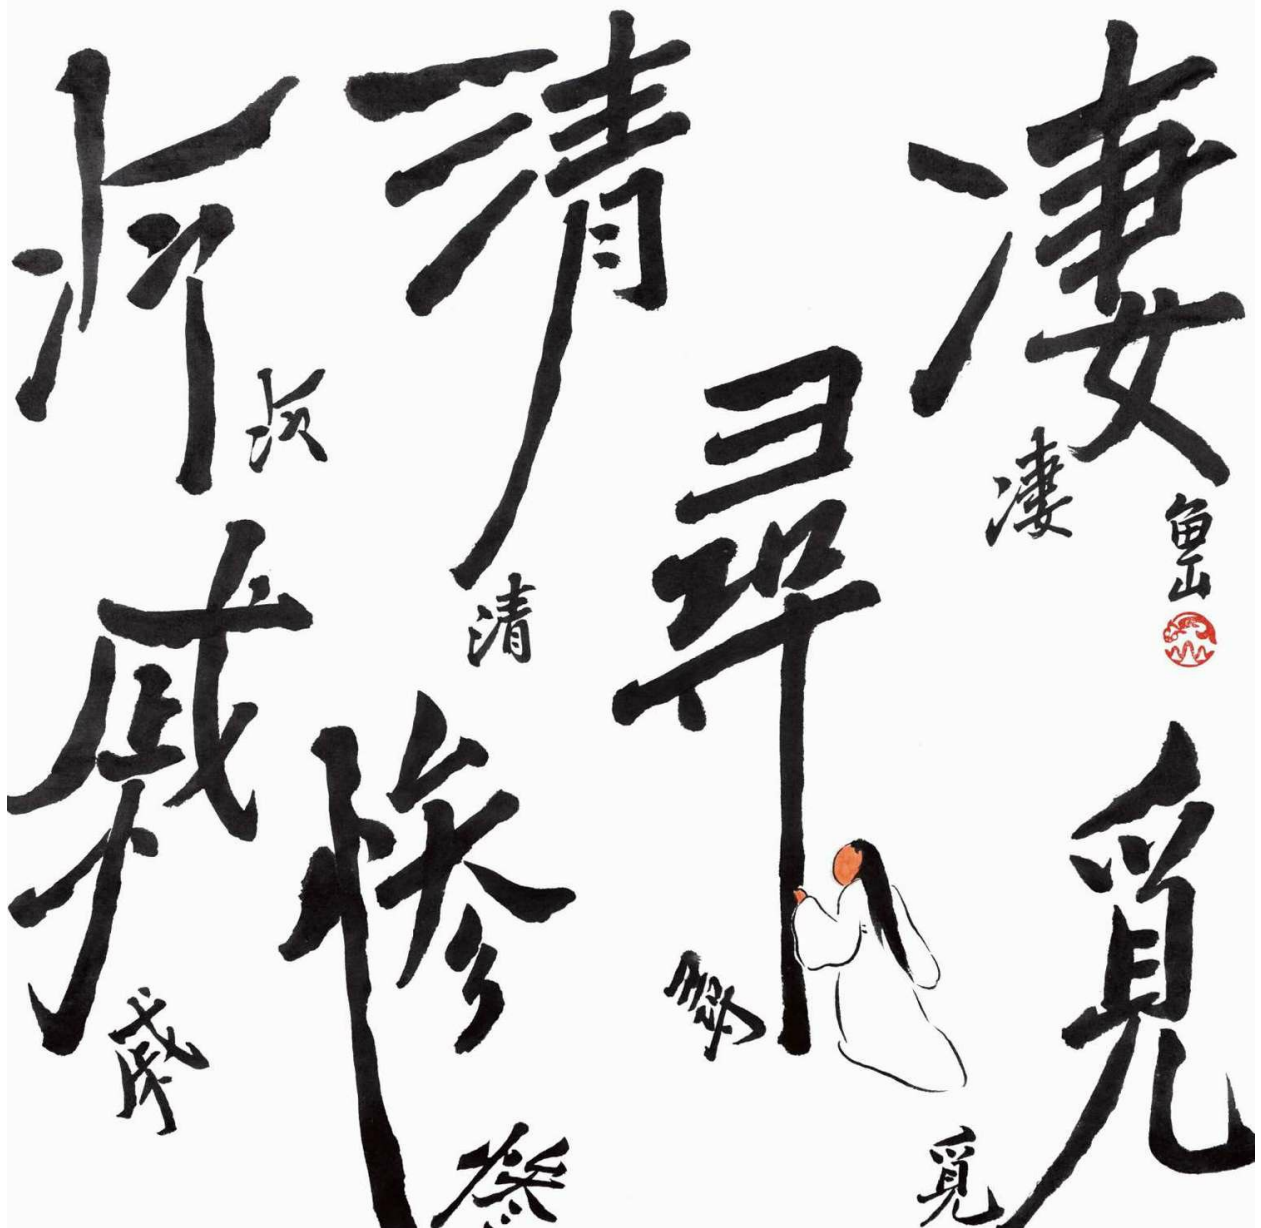 凄
凄
魚山
覓
覓
尋
尋
清
清
惨
惨
冷
冷
戚
戚